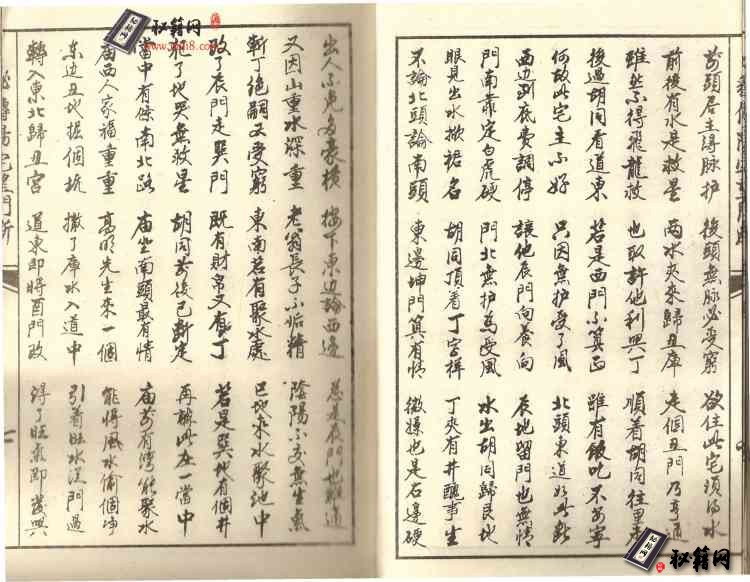 前頭居主得脉护 後頭無脉必受窮 欲住此宅須得水
前後有水是救星 兩水夾來歸丑庫 走個丑門乃亨通
雖然不得飛龍救 也取許他利興丁 順着胡同往里走
後過胡同看道東 若是西門不算正 雖有飯吃不安寧
何故此宅主不好 只因無护受了風 北頭東道如此斷
西边到底費調停 讓他辰門向養向 辰地留門也無情
門南靠定白虎硬 門北無护為受風 水出胡同歸艮地
眼見出水掀裙名 胡同頂看丁字样 丁夾有井醜事生
不論北頭論南頭 東邊坤門算有情 微嫌也是右邊硬
出人不免多豪横 接下東边論西邊 总是辰門也難通
又因山重水深重 老翁長子不妬精 陰陽不交無生氣
斬丁绝嗣又受窮 東南若有聚水處 巳地來水聚池中
改了辰門走巽門 既有財帛又有丁 若是巽地有個井
犯了地哭無救星 胡同前後已斷定 再論此在一當中
當中有條南北路 庙坐南頭最有情 庙前有灣能聚水
庙西人家福重重 高明先生來一個 能將風水偷個净
东边丑地掘個坑 撒了庫水入道中 引着旺水従門過
轉入東北歸丑宮 道東即將酉門改 得了旺氣即發興
秘籍网
秘籍网